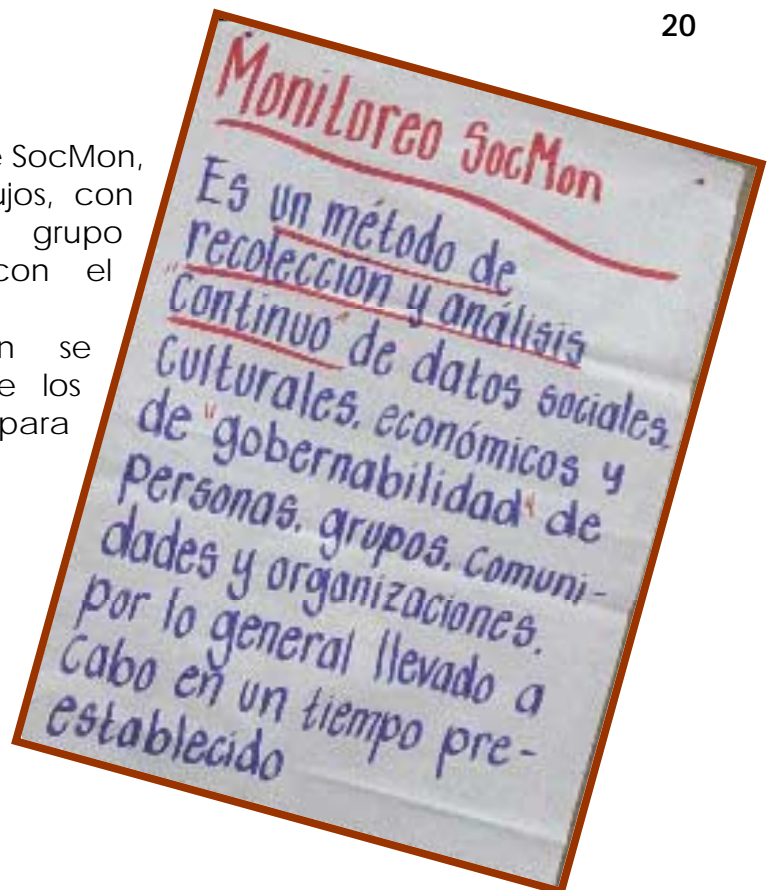 20
e SocMon,
ujos, con
grupo
con el
n se
e los
para
Monitoreo SocMon
Es un método de
recolección y análisis
"Continuo" de datos sociales,
Culturales, económicos y
de "gobernabilidad" de
personas, grupos, comuni-
dades y organizaciones,
por lo general llevado a
Cabo en un tiempo pre-
establecido